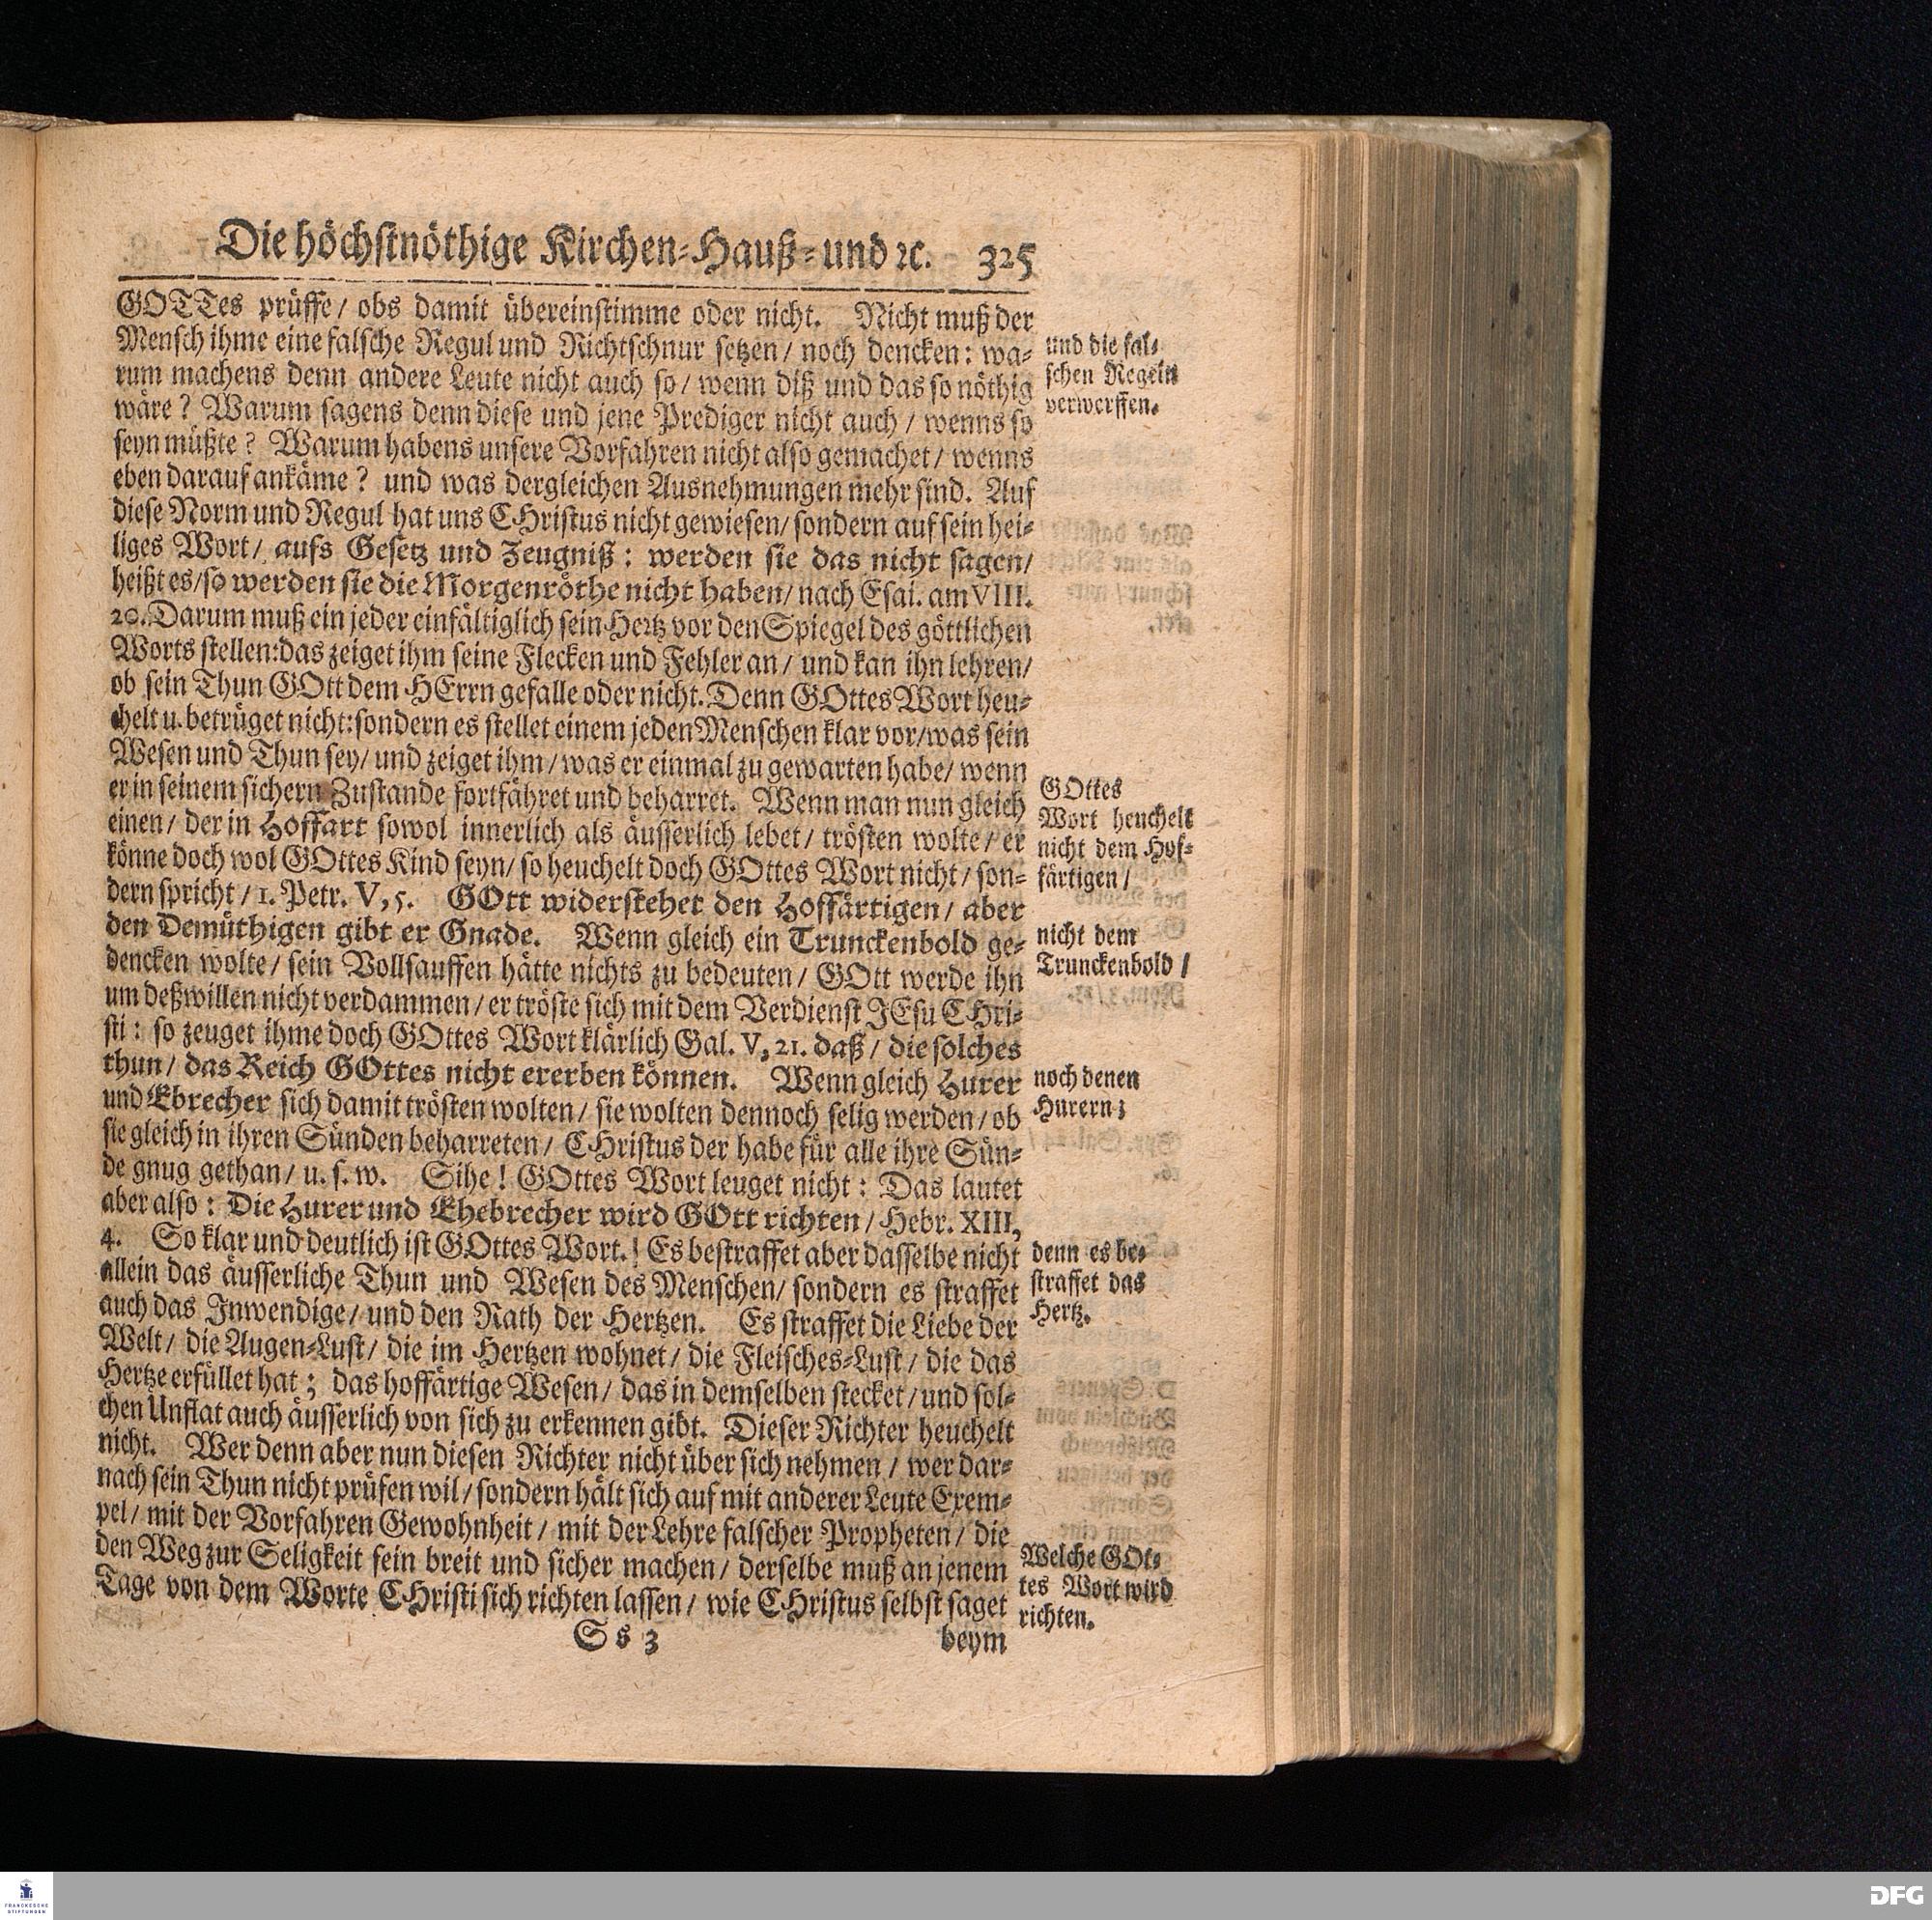 Die höchstnöthige Kirchen-Hauß- und ꝛc. 325
GOTTes prüffe/ obs damit übereinstimme oder nicht. Nicht muß der
Mensch ihme eine falsche Regul und Richtschnur setzen/ noch dencken: wa-
rum machens denn andere Leute nicht auch so/ wenn diß und das so nöthig
wäre? Warum sagens denn diese und jene Prediger nicht auch/ wenns so
seyn müßte? Warum habens unsere Vorfahren nicht also gemachet/ wenns
eben darauf ankäme? und was dergleichen Ausnehmungen mehr sind. Auf
diese Norm und Regul hat uns CHristus nicht gewiesen/ sondern auf sein hei-
liges Wort/ aufs Gesetz und Zeugniß: werden sie das nicht sagen/
heißt es/ so werden sie die Morgenröthe nicht haben/ nach Esai. am VIII.
20. Darum muß ein jeder einfältiglich sein Hertz vor den Spiegel des göttlichen
Worts stellen: das zeiget ihm seine Flecken und Fehler an/ und kan ihn lehren/
ob sein Thun GOtt dem HErrn gefalle oder nicht. Denn GOttes Wort heu-
chelt u. betrüget nicht: sondern es stellet einem jeden Menschen klar vor/ was sein
Wesen und Thun sey/ und zeiget ihm/ was er einmal zu gewarten habe/ wenn
er in seinem sichern Zustande fortfähret und beharret. Wenn man nun gleich
einen/ der in Hoffart sowol innerlich als äusserlich lebet/ trösten wolte/ er
könne doch wol GOttes Kind seyn/ so heuchelt doch GOttes Wort nicht/ son-
dern spricht/ 1. Petr. V, 5. GOtt widerstehet den Hoffärtigen/ aber
den Demüthigen gibt er Gnade. Wenn gleich ein Trunckenbold ge-
dencken wolte/ sein Vollsauffen hätte nichts zu bedeuten/ GOtt werde ihn
um deßwillen nicht verdammen/ er tröste sich mit dem Verdienst JEsu CHri-
sti: so zeuget ihme doch GOttes Wort klärlich Gal. V, 21. daß/ die solches
thun/ das Reich GOttes nicht ererben können. Wenn gleich Hurer
und Ebrecher sich damit trösten wolten/ sie wolten dennoch selig werden/ ob
sie gleich in ihren Sünden beharreten/ CHristus der habe für alle ihre Sün-
de gnug gethan/ u. s. w. Sihe! GOttes Wort leuget nicht: Das lautet
aber also: Die Hurer und Ehebrecher wird GOtt richten/ Hebr. XIII,
4. So klar und deutlich ist GOttes Wort.! Es bestraffet aber dasselbe nicht
allein das äusserliche Thun und Wesen des Menschen/ sondern es straffet
auch das Inwendige/ und den Rath der Hertzen. Es straffet die Liebe der
Welt/ die Augen-Lust/ die im Hertzen wohnet/ die Fleisches-Lust/ die das
Hertze erfüllet hat; das hoffärtige Wesen/ das in demselben stecket/ und sol-
chen Unflat auch äusserlich von sich zu erkennen gibt. Dieser Richter heuchelt
nicht. Wer denn aber nun diesen Richter nicht über sich nehmen/ wer dar-
nach sein Thun nicht prüfen wil/ sondern hält sich auf mit anderer Leute Exem-
pel/ mit der Vorfahren Gewohnheit/ mit der Lehre falscher Propheten/ die
den Weg zur Seligkeit fein breit und sicher machen/ derselbe muß an jenem
Tage von dem Worte CHristi sich richten lassen/ wie CHristus selbst saget
Ss 3 beym
und die fal-
schen Regeln
verwerffen.
GOttes
Wort heuchelt
nicht dem Hof-
färtigen/
nicht dem
Trunckenbold/
noch denen
Hurern;
denn es be-
straffet das
Hertz.
Welche GOt-
tes Wort wird
richten.
FRANCKESCHE
STIFTUNGEN
DFG